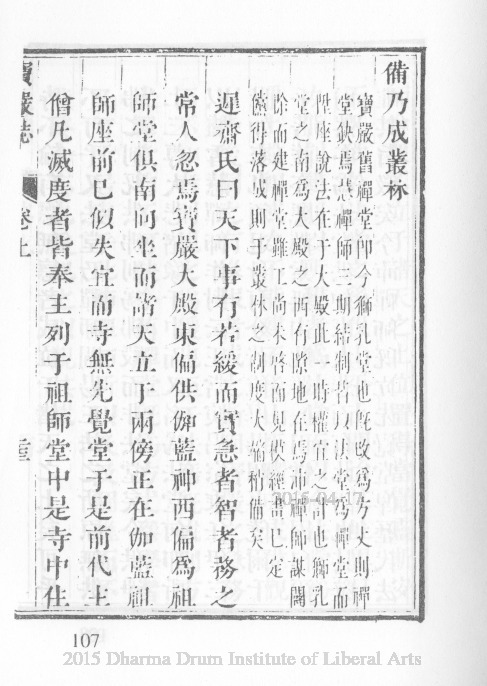 備乃成叢林
寶嚴舊禪堂卽今獅乳堂也旣改爲方丈則禪
堂缺焉慧禪師三期結制皆以法堂爲禪堂而
陞座說法在于大殿此一時權宜之計也獅乳
堂之南爲大殿之西有隙地在焉沛禪師謀闢
除而建禪堂雖工尚未啓而規模經畫已定
儻得落成則于叢林之制度大端稍備矣
遲齋氏曰天下事有若緩而實急者智者務之
常人忽焉寶嚴大殿東偏供伽藍神西偏爲祖
師堂俱南向坐而諸天立于兩傍正在伽藍祖
師座前已似失宜而寺無先覺堂于是前代主
僧凡滅度者皆奉主列于祖師堂中是寺中住
寶嚴志 卷上
2015-04-17
107
2015 Dharma Drum Institute of Liberal Arts